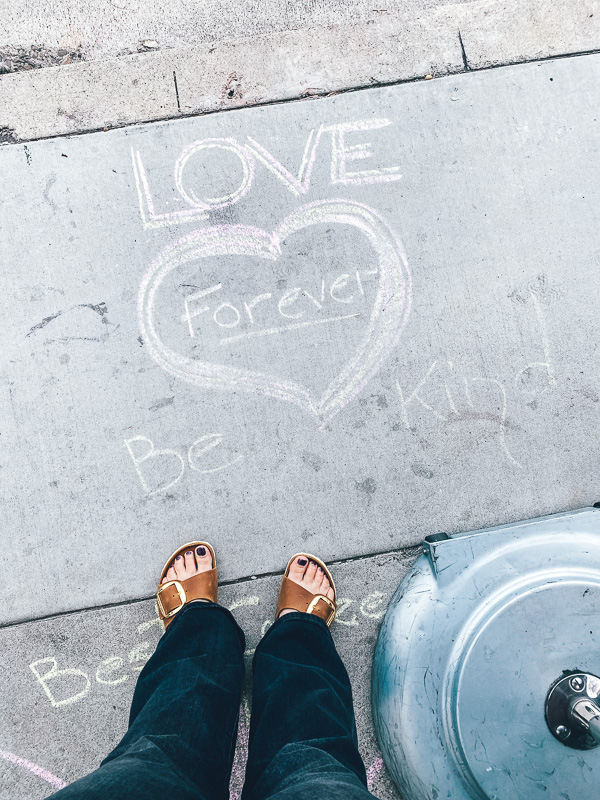 LOVE
Forever
Be Kind
Be